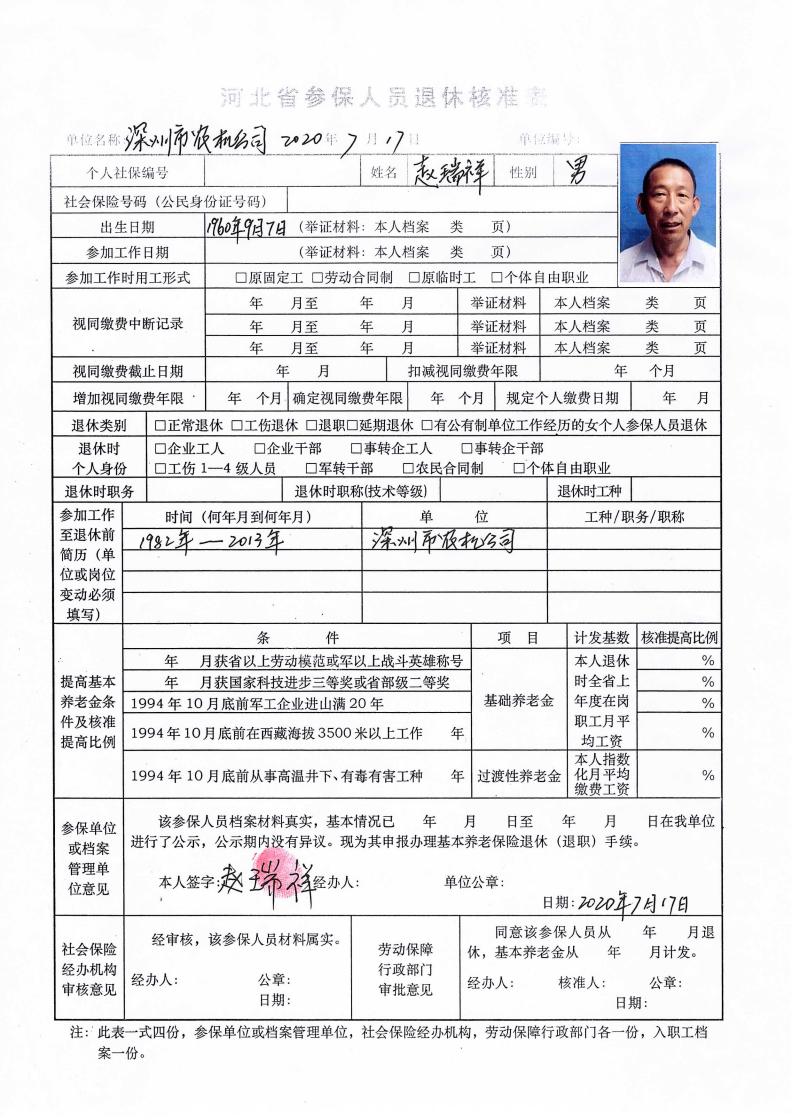 河北省参保人员退休核准表
单位名称:深州市农机公司 2020年7月17日 单位编号:
个人社保编号 姓名 赵瑞祥 性别 男
社会保险号码(公民身份证号码)
出生日期 1960年9月7日 (举证材料:本人档案 类 页)
参加工作日期 (举证材料:本人档案 类 页)
参加工作时用工形式 □原固定工 □劳动合同制 □原临时工 □个体自由职业
视同缴费中断记录 年 月至 年 月 举证材料 本人档案 类 页
年 月至 年 月 举证材料 本人档案 类 页
年 月至 年 月 举证材料 本人档案 类 页
视同缴费截止日期 年 月 扣减视同缴费年限 年 个月
增加视同缴费年限 年 个月 确定视同缴费年限 年 个月 规定个人缴费日期 年 月
退休类别 □正常退休 □工伤退休 □退职□延期退休 □有公有制单位工作经历的女个人参保人员退休
退休时个人身份 □企业工人 □企业干部 □事转企工人 □事转企干部
□工伤1—4级人员 □军转干部 □农民合同制 □个体自由职业
退休时职务 退休时职称(技术等级) 退休时工种
参加工作至退休前简历(单位或岗位变动必须填写) 时间(何年月到何年月) 单 位 工种/职务/职称
1982年—2013年 深州市农机公司
提高基本养老金条件及核准提高比例 条 件 项 目 计发基数 核准提高比例
年 月获省以上劳动模范或军以上战斗英雄称号 基础养老金 本人退休时全省上年度在岗职工月平均工资 %
年 月获国家科技进步三等奖或省部级二等奖 %
1994年10月底前军工企业进山满20年 %
1994年10月底前在西藏海拔3500米以上工作 年 %
1994年10月底前从事高温井下、有毒有害工种 年 过渡性养老金 本人指数化月平均缴费工资 %
参保单位或档案管理单位意见 该参保人员档案材料真实,基本情况已 年 月 日至 年 月 日在我单位
进行了公示,公示期内没有异议。现为其申报办理基本养老保险退休(退职)手续。
本人签字:赵瑞祥 经办人: 单位公章:
日期:2020年7月17日
社会保险经办机构审核意见 经审核,该参保人员材料属实。
经办人: 公章:
日期:
劳动保障行政部门审批意见 同意该参保人员从 年 月退
休,基本养老金从 年 月计发。
经办人: 核准人: 公章:
日期:
注:此表一式四份,参保单位或档案管理单位,社会保险经办机构,劳动保障行政部门各一份,入职工档
案一份。